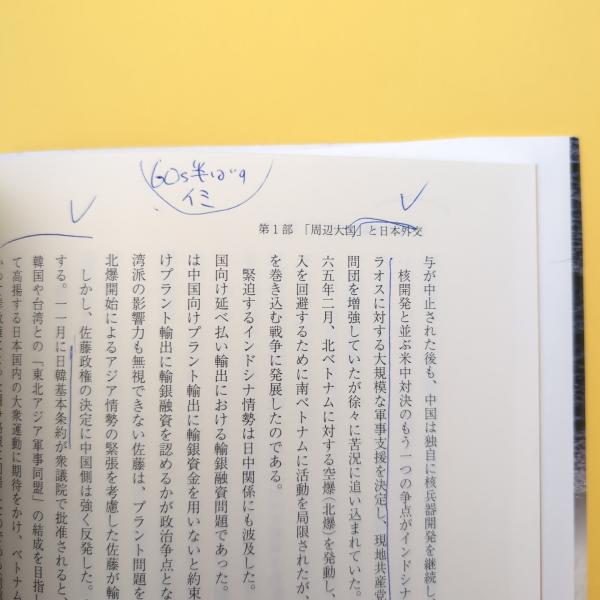 60s半ばの
イミ
第1部 「周辺大国」と日本外交
与が中止された後も、中国は独自に核兵器開発を継続し、
核開発と並ぶ米中対決のもう一つの争点がインドシナ
ラオスに対する大規模な軍事支援を決定し、現地共産党
問団を増強していたが徐々に苦況に追い込まれていた。
六五年二月、北ベトナムに対する空爆(北爆)を発動し、
入を回避するために南ベトナムに活動を局限されたが、
を巻き込む戦争に発展したのである。
緊迫するインドシナ情勢は日中関係にも波及した。
国向け延べ払い輸出における輸銀融資問題であった。
は中国向けプラント輸出に輸銀資金を用いないと約束
けプラント輸出に輸銀融資を認めるかが政治争点とな
湾派の影響力も無視できない佐藤は、プラント問題を
北爆開始によるアジア情勢の緊張を考慮した佐藤が輸
しかし、佐藤政権の決定に中国側は強く反発した。
する。一一月に日韓基本条約が衆議院で批准されると、
韓国や台湾との「東北アジア軍事同盟」の結成を目指し
て高揚する日本国内の大衆運動に期待をかけ、ベトナム